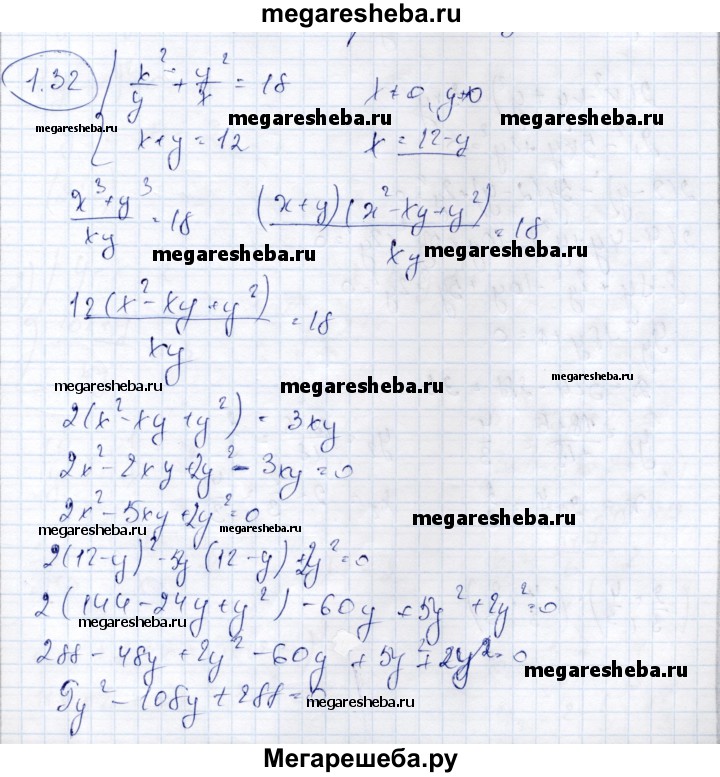 megaresheba.ru
1.32 { x²/y + y²/x = 18 x ≠ 0, y ≠ 0
megaresheba.ru megaresheba.ru megaresheba.ru
x + y = 12 x = 12 - y
(x³ + y³)/xy = 18 (x + y)(x² - xy + y²)/xy = 18
megaresheba.ru megaresheba.ru
12(x² - xy + y²)/xy = 18
megaresheba.ru megaresheba.ru megaresheba.ru
2(x² - xy + y²) = 3xy
2x² - 2xy + 2y² - 3xy = 0
2x² - 5xy + 2y² = 0
megaresheba.ru megaresheba.ru megaresheba.ru
2(12 - y)² - 5y(12 - y) + 2y² = 0
2(144 - 24y + y²) - 60y + 5y² + 2y² = 0
megaresheba.ru
288 - 48y + 2y² - 60y + 5y² + 2y² = 0
megaresheba.ru
9y² - 108y + 288 = 0
megaresheba.ru
Мегарешеба.ру